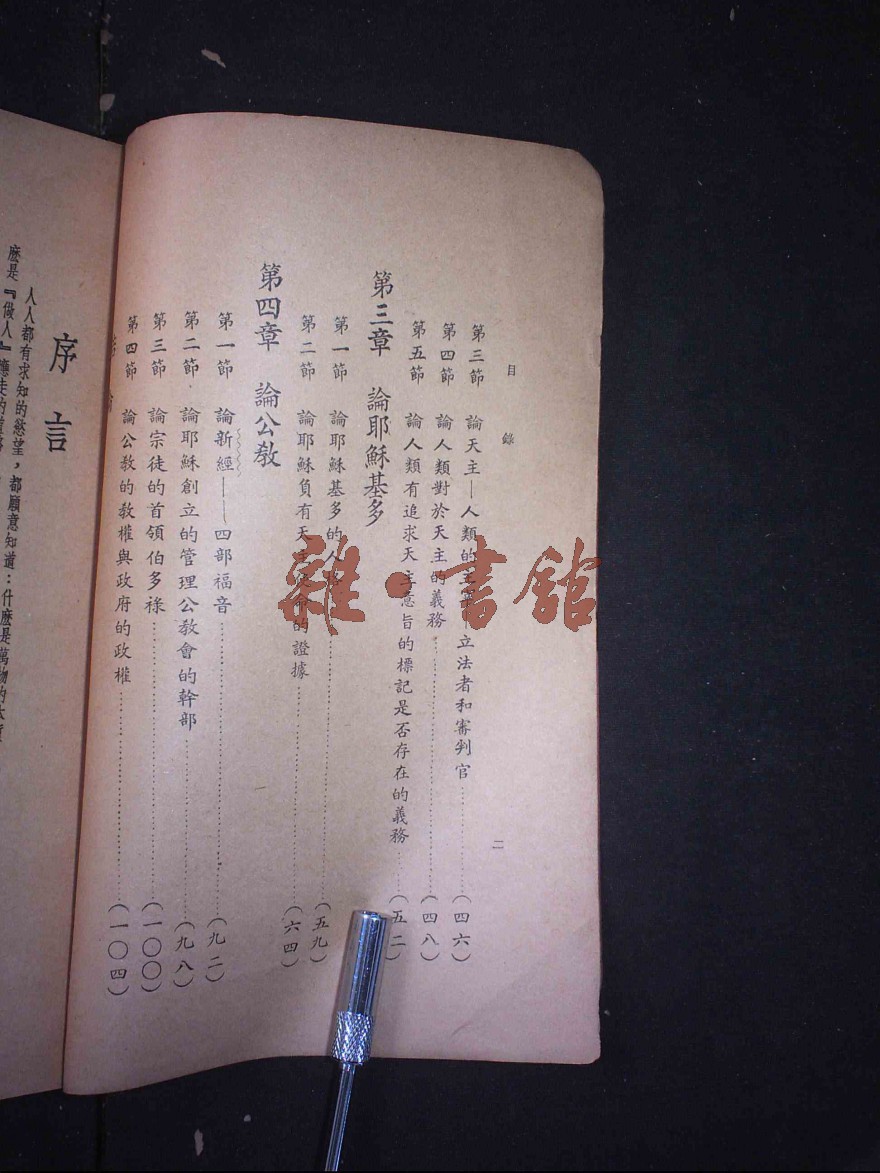 目錄
二
第三節 論天主—人類的主宰—立法者和審判官……(四六)
第四節 論人類對於天主的義務……(四八)
第五節 論人類有追求天主意旨的標記是否存在的義務……(五二)
第三章 論耶穌基多
第一節 論耶穌基多的人格……(五九)
第二節 論耶穌負有天主使命的證據……(六四)
第四章 論公教
第一節 論新經——四部福音……(九二)
第二節 論耶穌創立的管理公教會的幹部……(九八)
第三節 論宗徒的首領伯多祿……(一〇〇)
第四節 論公教的教權與政府的政權……(一〇四)
論
序言
人人都有求知的慾望,都願意知道:什麽是萬物的本
麽是『做人』應走的
雜·書館